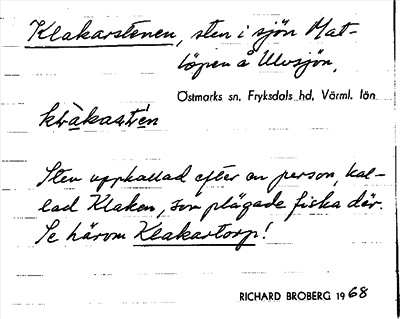 Klakarstenen, sten i sjön Mat-
löpen å Ulvsjön,
Östmarks sn, Fryksdals hd, Värml. län
Sten upphallad efter en person, kal-
lad Klaken, som plägade fiska där.
Se härom Klakartorp!
RICHARD BROBERG 1968